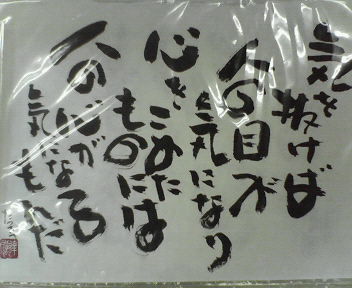 気を抜けば
人の目が
気になり
心をこめた
ものには
人の心が
気になるもんだ